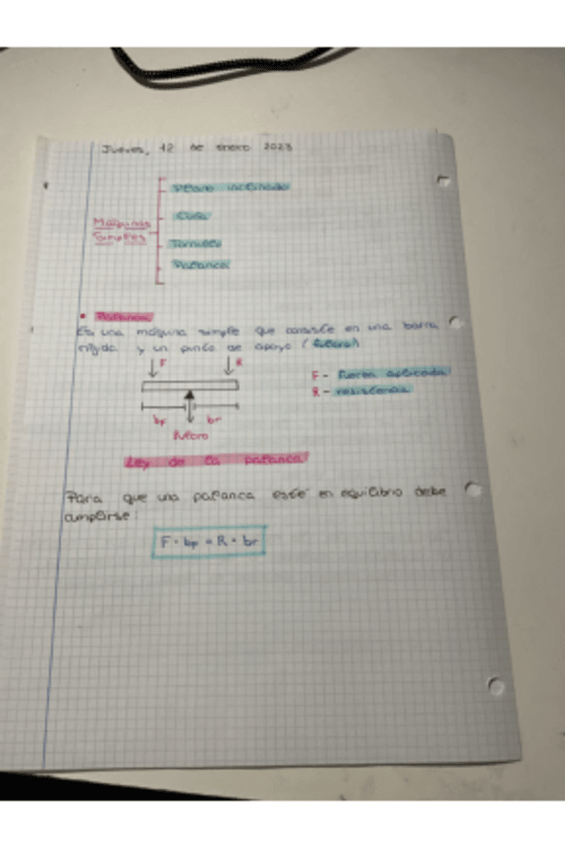 Jueves, 12 de enero 2023
Máquinas Simples
Plano inclinado
Cuña
Tornillo
Palanca
• Palanca
Es una máquina simple que consiste en una barra
rígida y un punto de apoyo (fulcro)
F R
F - fuerza aplicada
R - resistencia
bF br
fulcro
Ley de la palanca
Para que una palanca esté en equilibrio debe
cumplirse:
F · bF = R · br